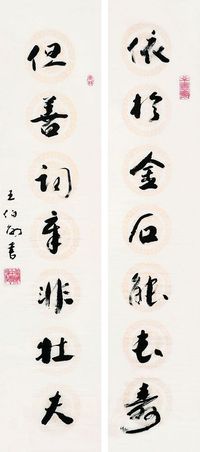 依於金石能長壽
但善词章非壮夫
王伯敏書